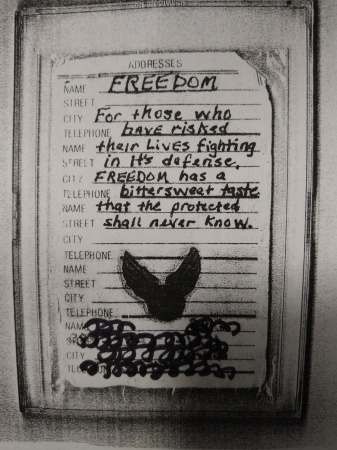 ADDRESSES
NAME FREEDOM
STREET
CITY For those who
TELEPHONE have risked
NAME their Lives fighting
STREET in it's defense,
CITY FREEDOM has a
TELEPHONE bittersweet taste
NAME that the protected
STREET shall never know.
CITY
TELEPHONE
NAME
STREET
CITY
TELEPHONE
NAME
CITY